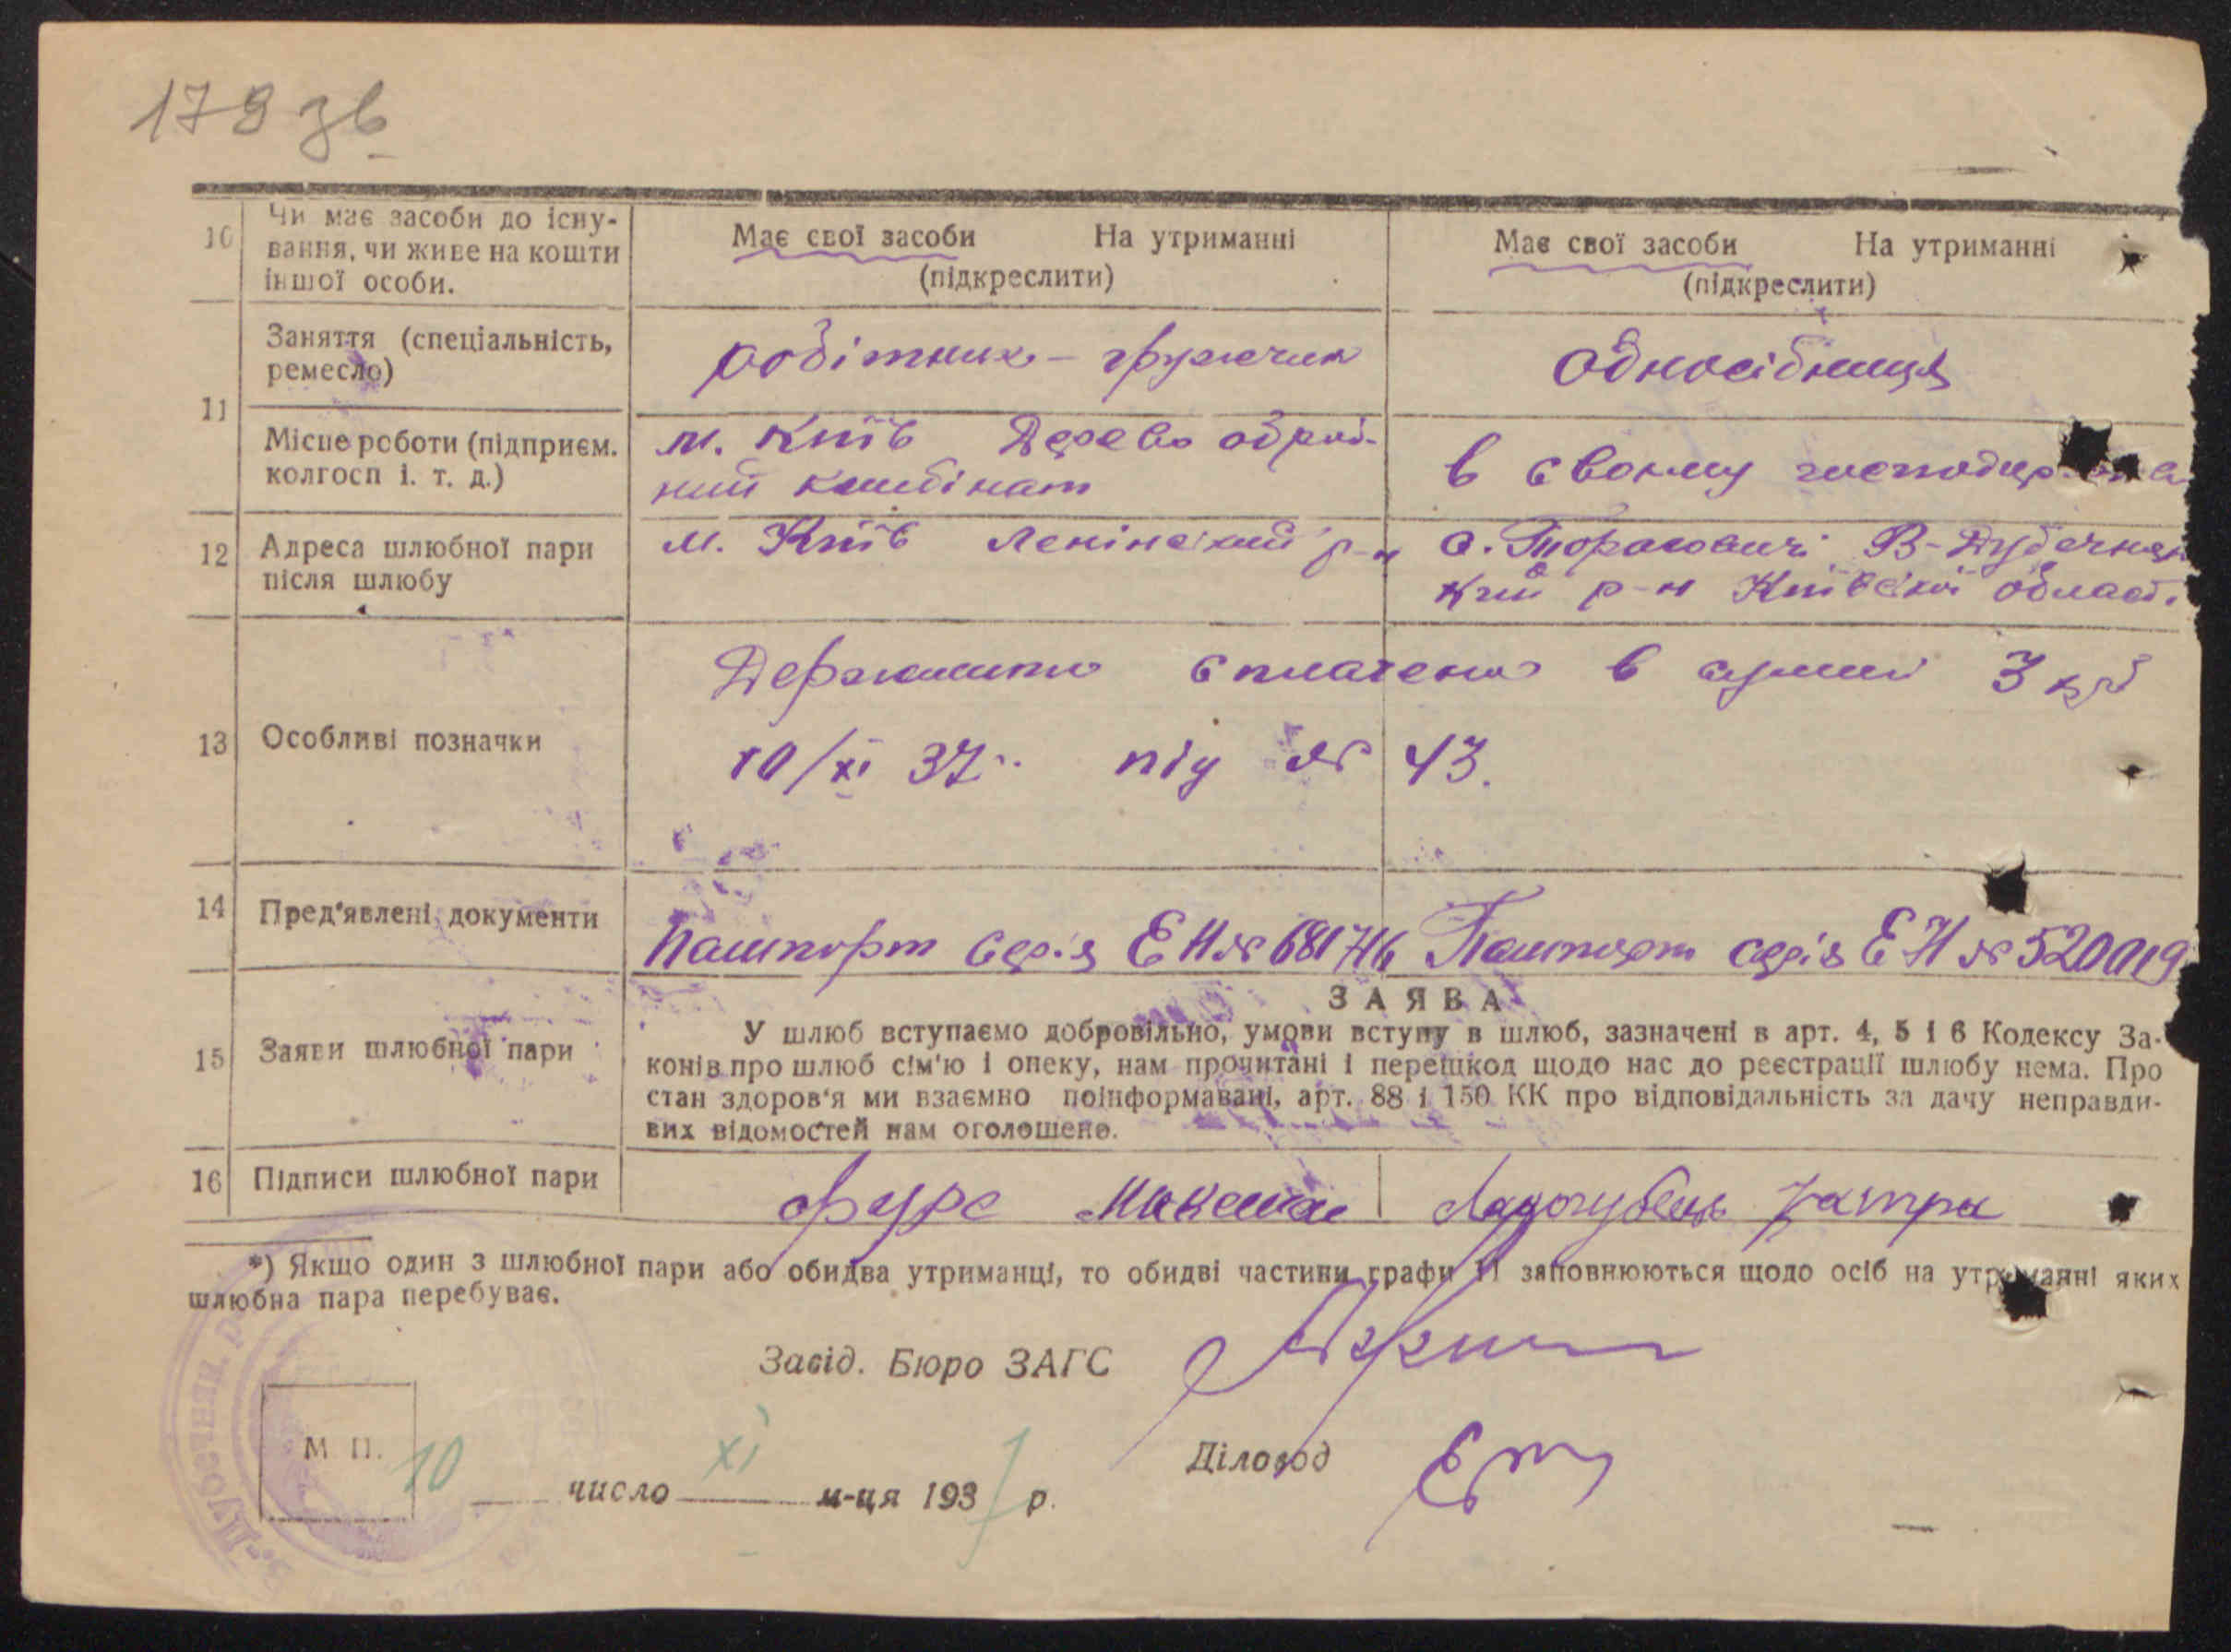 178 зв
10 Чи має засоби до існу-
вання, чи живе на кошти
іншої особи.
Має свої засоби На утриманні
(підкреслити)
Має свої засоби На утриманні
(підкреслити)
11
Заняття (спеціальність,
ремесло)
робітник - грузчик
Односібниця
Місце роботи (підприєм.
колгосп і. т. д.)
м. Київ Дерево оброб-
ний комбінат
в своєму
12 Адреса шлюбної пари
після шлюбу
м. Київ Ленінський р-н
с. Тарасовичі В-Дубечнян
кий р-н Київської област.
13 Особливі позначки
Держмито сплачено в сумі 3 крб
10/XI 37.. під № 43.
14 Пред'явлені документи
Пашпорт серія ЕН № 681716
Пашпорт серія ЕН № 520019
15 Заяви шлюбної пари
ЗАЯВА
У шлюб вступаємо добровільно, умови вступу в шлюб, зазначені в арт. 4, 5 і 6 Кодексу За-
конів про шлюб сім'ю і опеку, нам прочитані і перешкод щодо нас до реєстрації шлюбу нема. Про
стан здоров'я ми взаємно поінформавані, арт. 88 і 150 КК про відповідальність за дачу неправди-
вих відомостей нам оголошено.
16 Підписи шлюбної пари
Фурс
*) Якщо один з шлюбної пари або обидва утриманці, то обидві частини графи 11 заповнюються щодо осіб на утриманні яких
шлюбна пара перебуває.
Завід. Бюро ЗАГС
М. П.
10 число XI м-ця 1937 р.
Діловод